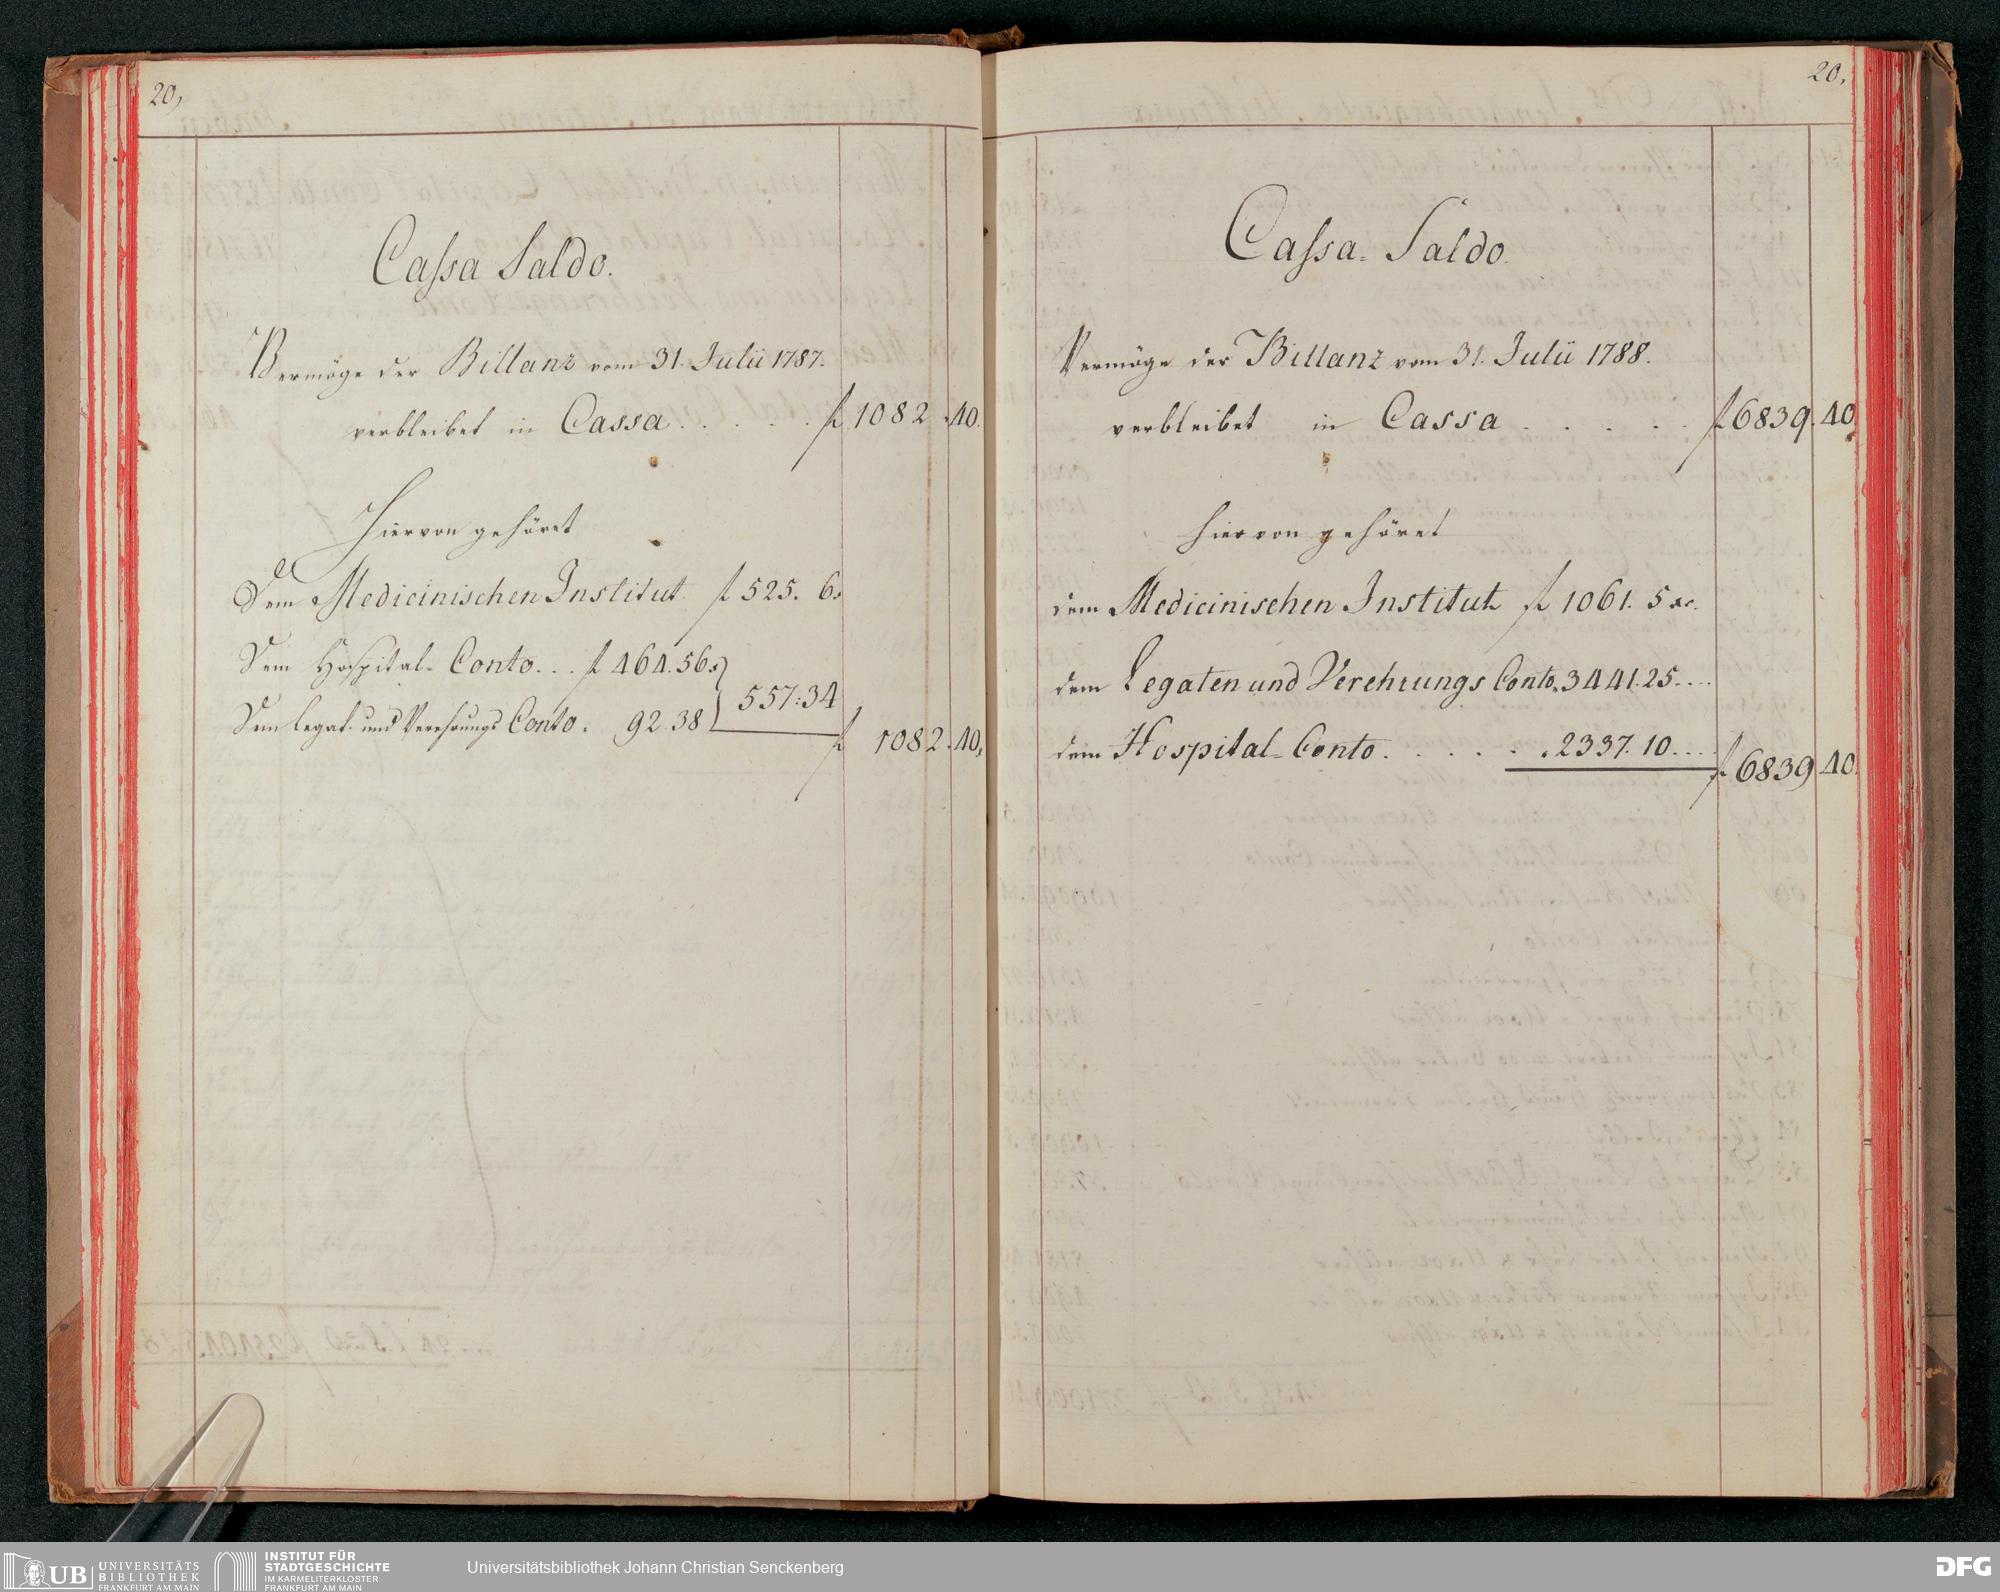 20,
Cassa Saldo.
Vermöge der Billanz vom 31. Julii 1787.
verbleibet in Cassa . . . . . f 1082 . 40.
Hiervon gehöret
Dem Medicinischen Institut. f 525. 6.
Dem Hospital-Conto . . . f 464. 56.
557:34
Dem Legat- und Verehrungs Conto. 92. 38
f 1082. 40,
20,
Cassa-Saldo.
Vermöge der Billanz vom 31. Julii 1788.
verbleibet in Cassa . . . . . f 6839. 40
hiervon gehöret
dem Medicinischen Institut f 1061. 5 xr.
dem Legaten und Verehrungs Conto. 3441. 25 . . . .
dem Hospital-Conto . . . . . . 2337. 10 . . . .
f 6839 40.
UB UNIVERSITÄTS
BIBLIOTHEK
FRANKFURT AM MAIN
INSTITUT FÜR
STADTGESCHICHTE
IM KARMELITERKLOSTER
FRANKFURT AM MAIN
Universitätsbibliothek Johann Christian Senckenberg
DFG